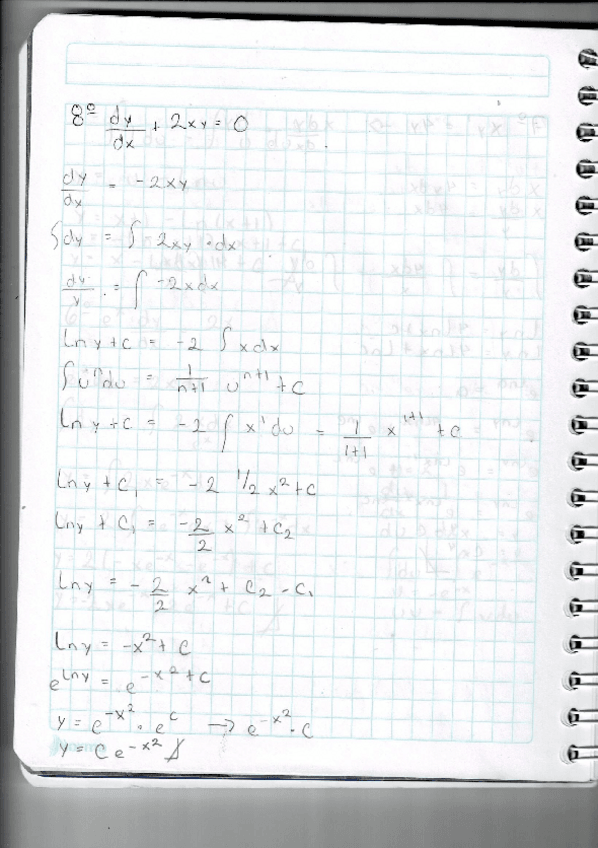 8º dy/dx + 2xy = 0
dy/dx = -2xy
∫dy = ∫ 2xy · dx
dy/y = ∫ -2xdx
Lny + c = -2 ∫ xdx
∫u^n du = 1/(n+1) u^(n+1) + c
Lny + c = -2 ∫ x^1 du = 1/(1+1) x^(1+1) + c
Lny + C₁ = -2 1/2 x² + C
Lny + C₁ = -2/2 x² + C₂
Lny = -2/2 x² + C₂ - C₁
Lny = -x² + C
e^(Lny) = e^(-x²+C)
y = e^(-x²) · e^c → e^(-x²) · C
y = C e^(-x²)